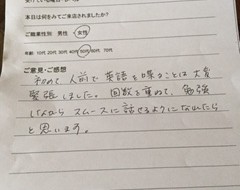 本日は何をみてご来店されましたか?
ご職業性別 男性・女性
年齢 10代 20代 30代 40代 50代 60代 70代
ご意見・ご感想
初めて人前で英語を喋ることは大変
緊張しました。回数を重ねて、勉強
しながらスムースに話せるようになれたら
と思います。